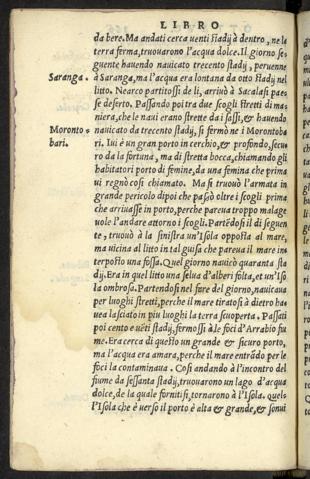 LIBRO
da bere. Ma andati cerca uenti stadij à dentro, ne la
terra ferma, truouarono l'acqua dolce. Il giorno se-
guente hauendo nauicato trecento stadij, peruenne
Saranga. à Saranga, ma l'acqua era lontana da otto stadij nel
litto. Nearco partitossi de li, arriuò à Sacalasi pae-
se deserto. Passando poi tra due scogli stretti di ma-
niera, che le naui erano strette da i sassi, & hauendo
Moronto- nauicato da trecento stadij, si fermò ne i Morontoba
bari. ri. Iui è un gran porto in cerchio, & profondo, secu-
ro da la fortuna, ma di stretta bocca, chiamando gli
habitatori porto di femine, da una femina che prima
ui regnò cosi chiamato. Ma si truouò l'armata in
grande pericolo dipoi che passò oltre i scogli prima
che arriuasse in porto, perche pareua troppo malage
uole l'andare attorno i scogli. Partēdosi il dì seguen
te, truouò à la sinistra un'Isola opposta al mare,
ma uicina al litto in tal guisa che pareua il mare in-
terposto una fossa. Quel giorno nauicò quaranta sta
dij. Era in quel litto una selua d'alberi folta, et un'Iso
la ombrosa. Partendosi nel fare del giorno, nauicaua
per luoghi stretti, perche il mare tiratosi à dietro ha-
uea lasciato in piu luoghi la terra scuoperta. Passati
poi cento e uēti stadij, fermossi à le foci d'Arrabio fiu
me. Era cerca di questo un grande & sicuro porto,
ma l'acqua era amara, perche il mare entrādo per le
foci la contaminaua. Cosi andando à l'incontro del
fiume da sessanta stadij, truouarono un lago d'acqua
dolce, de la quale fornitisi, tornarono à l'Isola. Quel-
l'Isola che è uerso il porto è alta & grande, & sonui